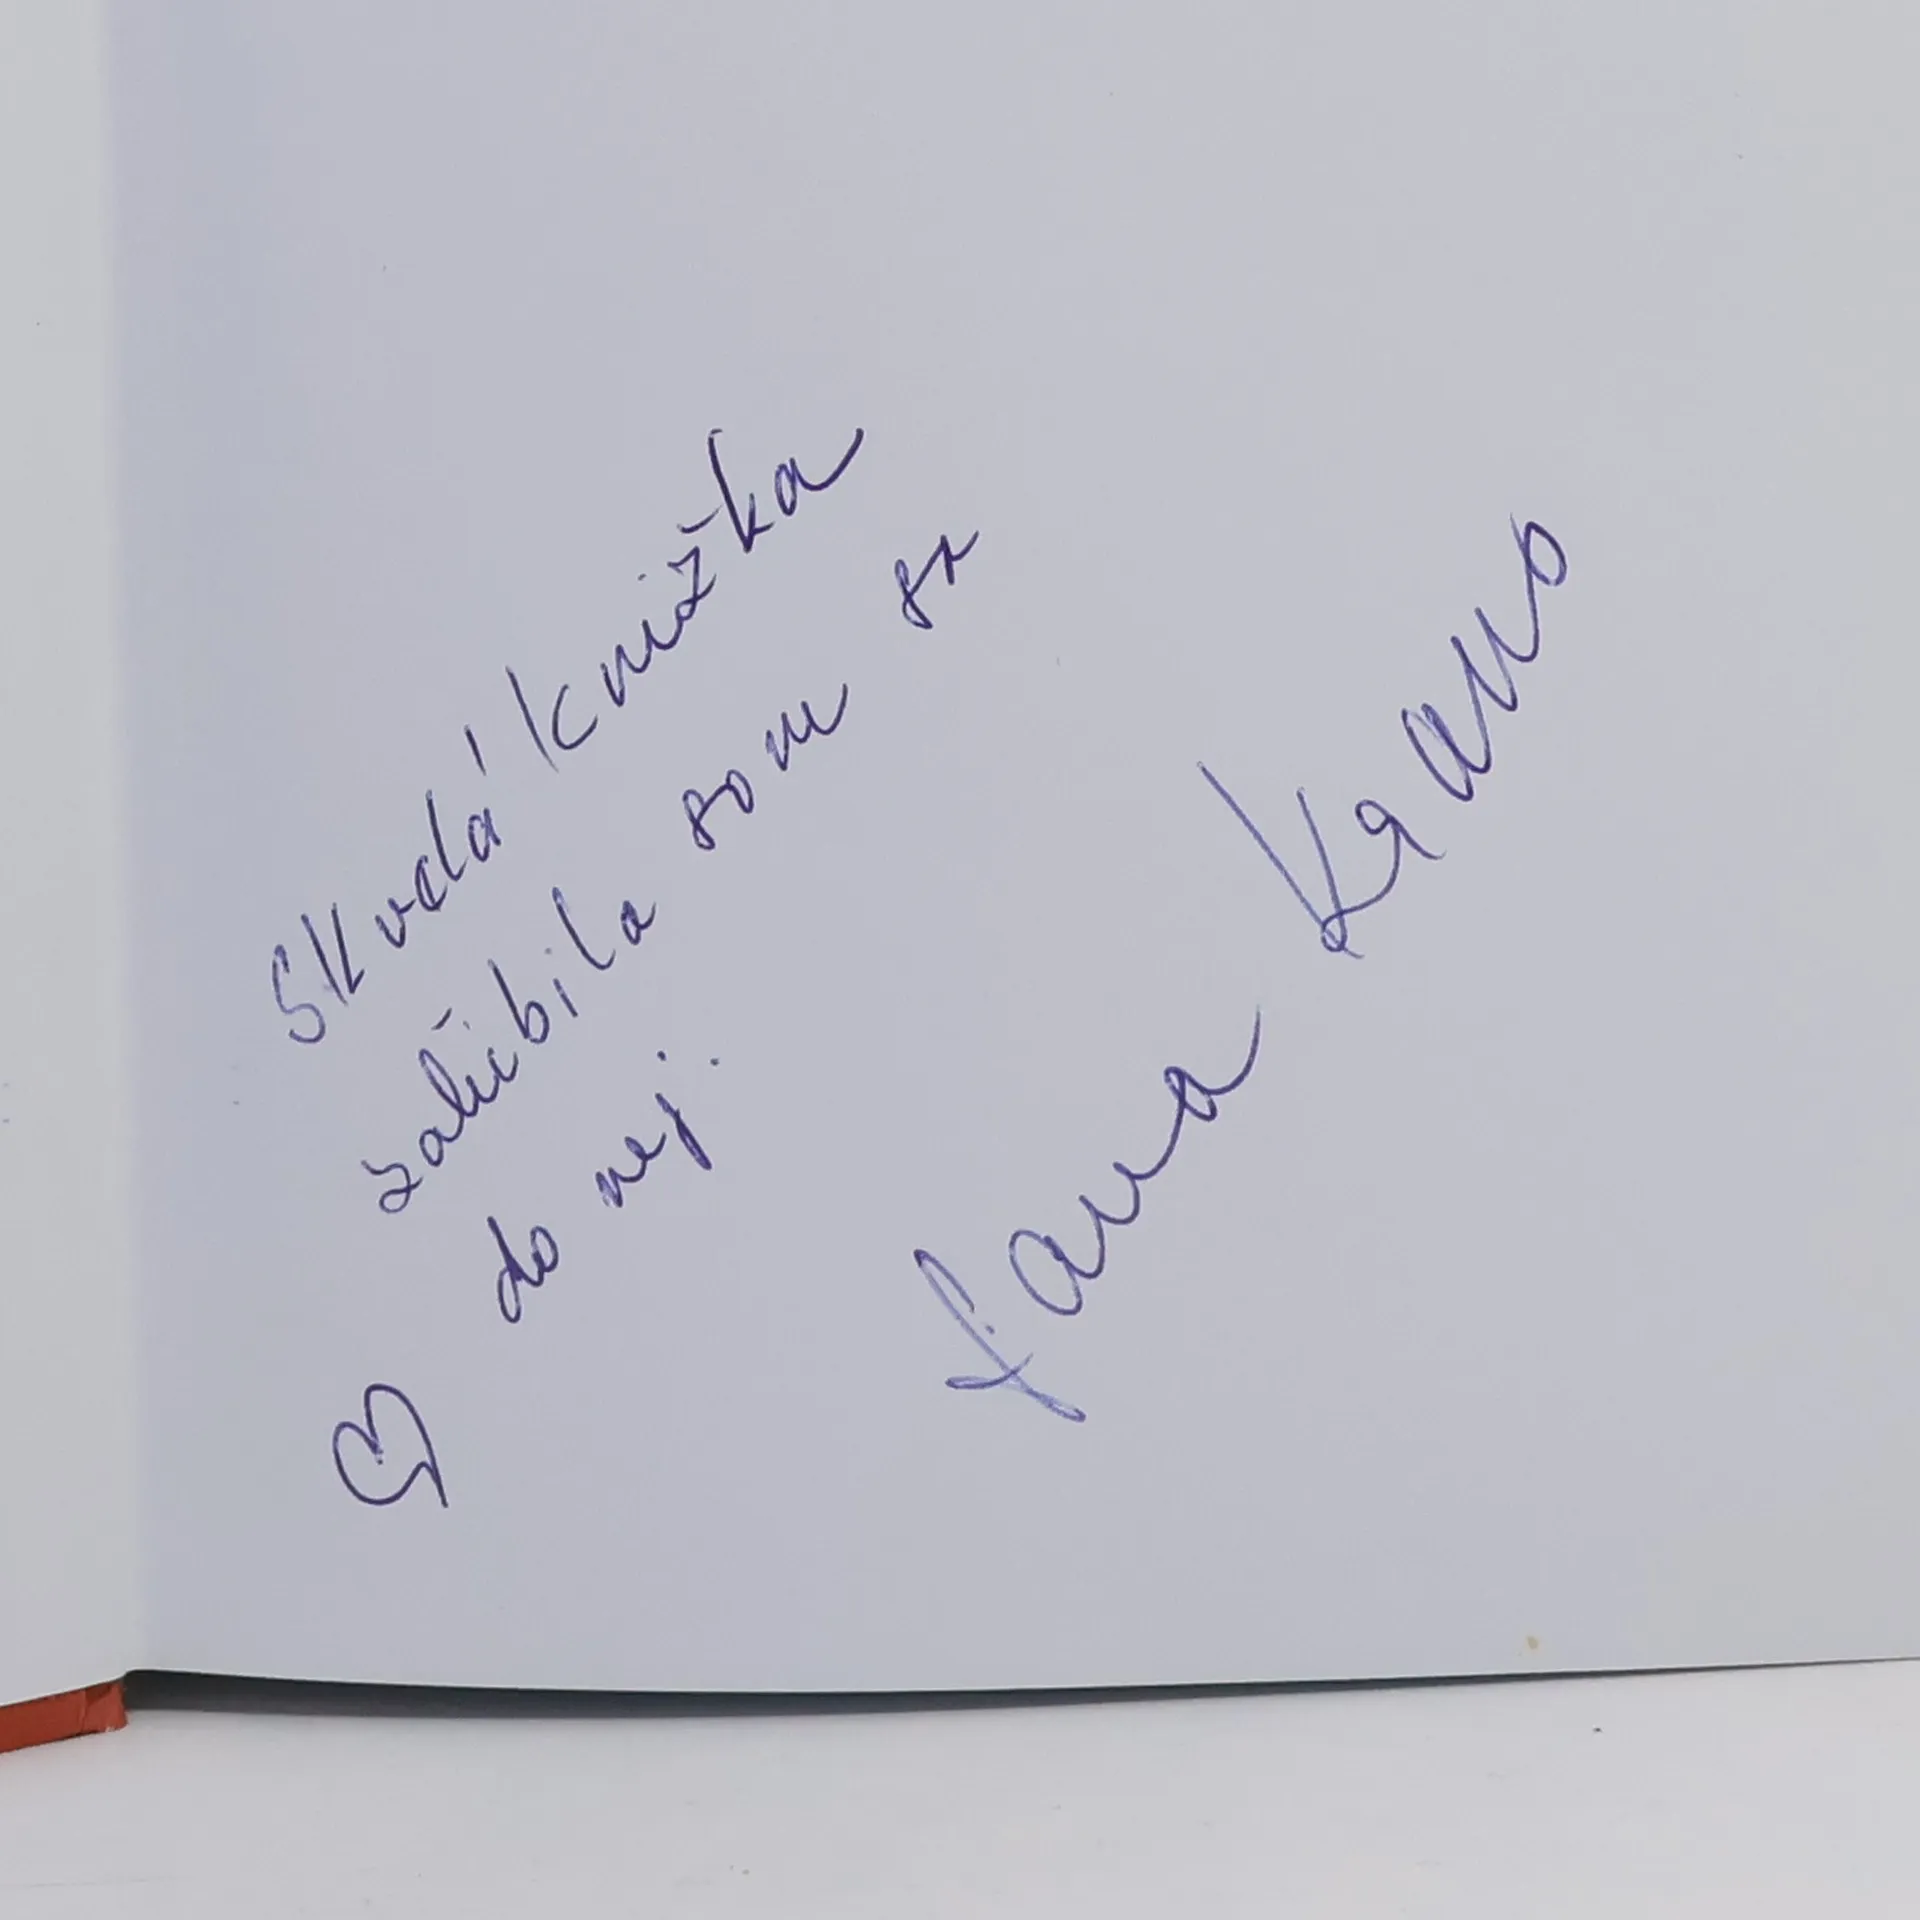 Skvelá knižka
zaľúbila som sa
do nej.
Jana Krano